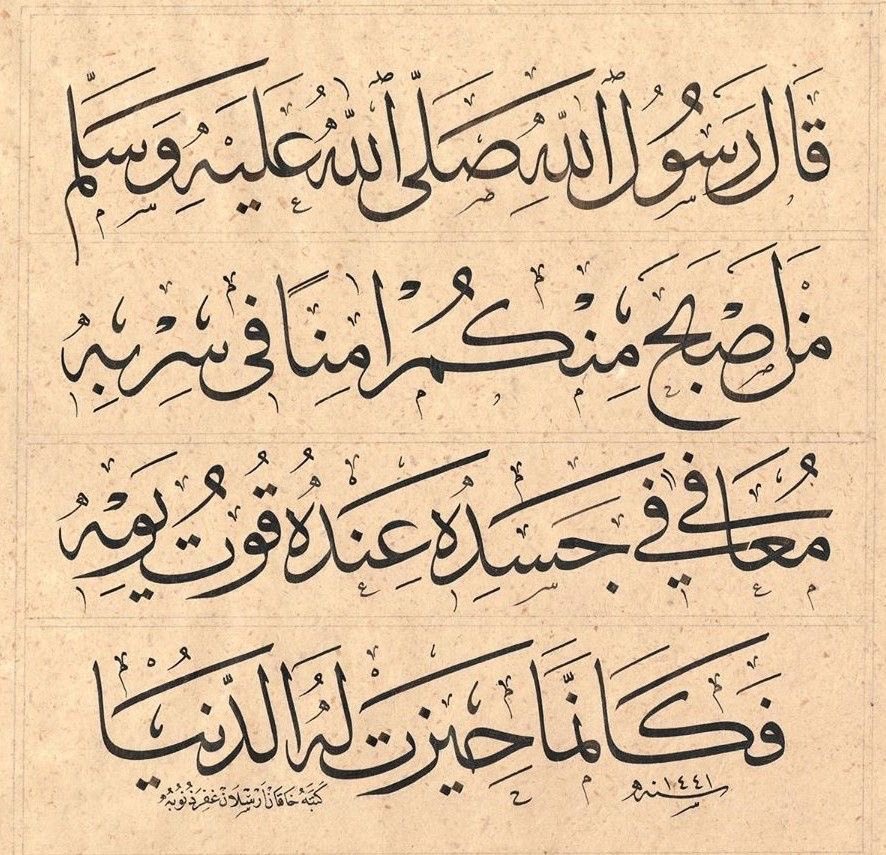 قَالَ رَسُولُ ٱللّٰهِ صَلَّى ٱللّٰهُ عَلَيْهِ وَسَلَّم
مَنْ اَصْبَحَ مِنْكُمْ اٰمِنًا فِى سِرْبِهِ
مُعَافًى فِي جَسَدِهِ عِنْدَهُ قُوتُ يَوْمِهِ
فَكَاَنَّمَا حِيزَتْ لَهُ الدُّنْيَا
سنه ١٤٤١
كَتَبَهُ خَاقَان اَرْسَلَان غُفِرَ ذُنُوبُهُ